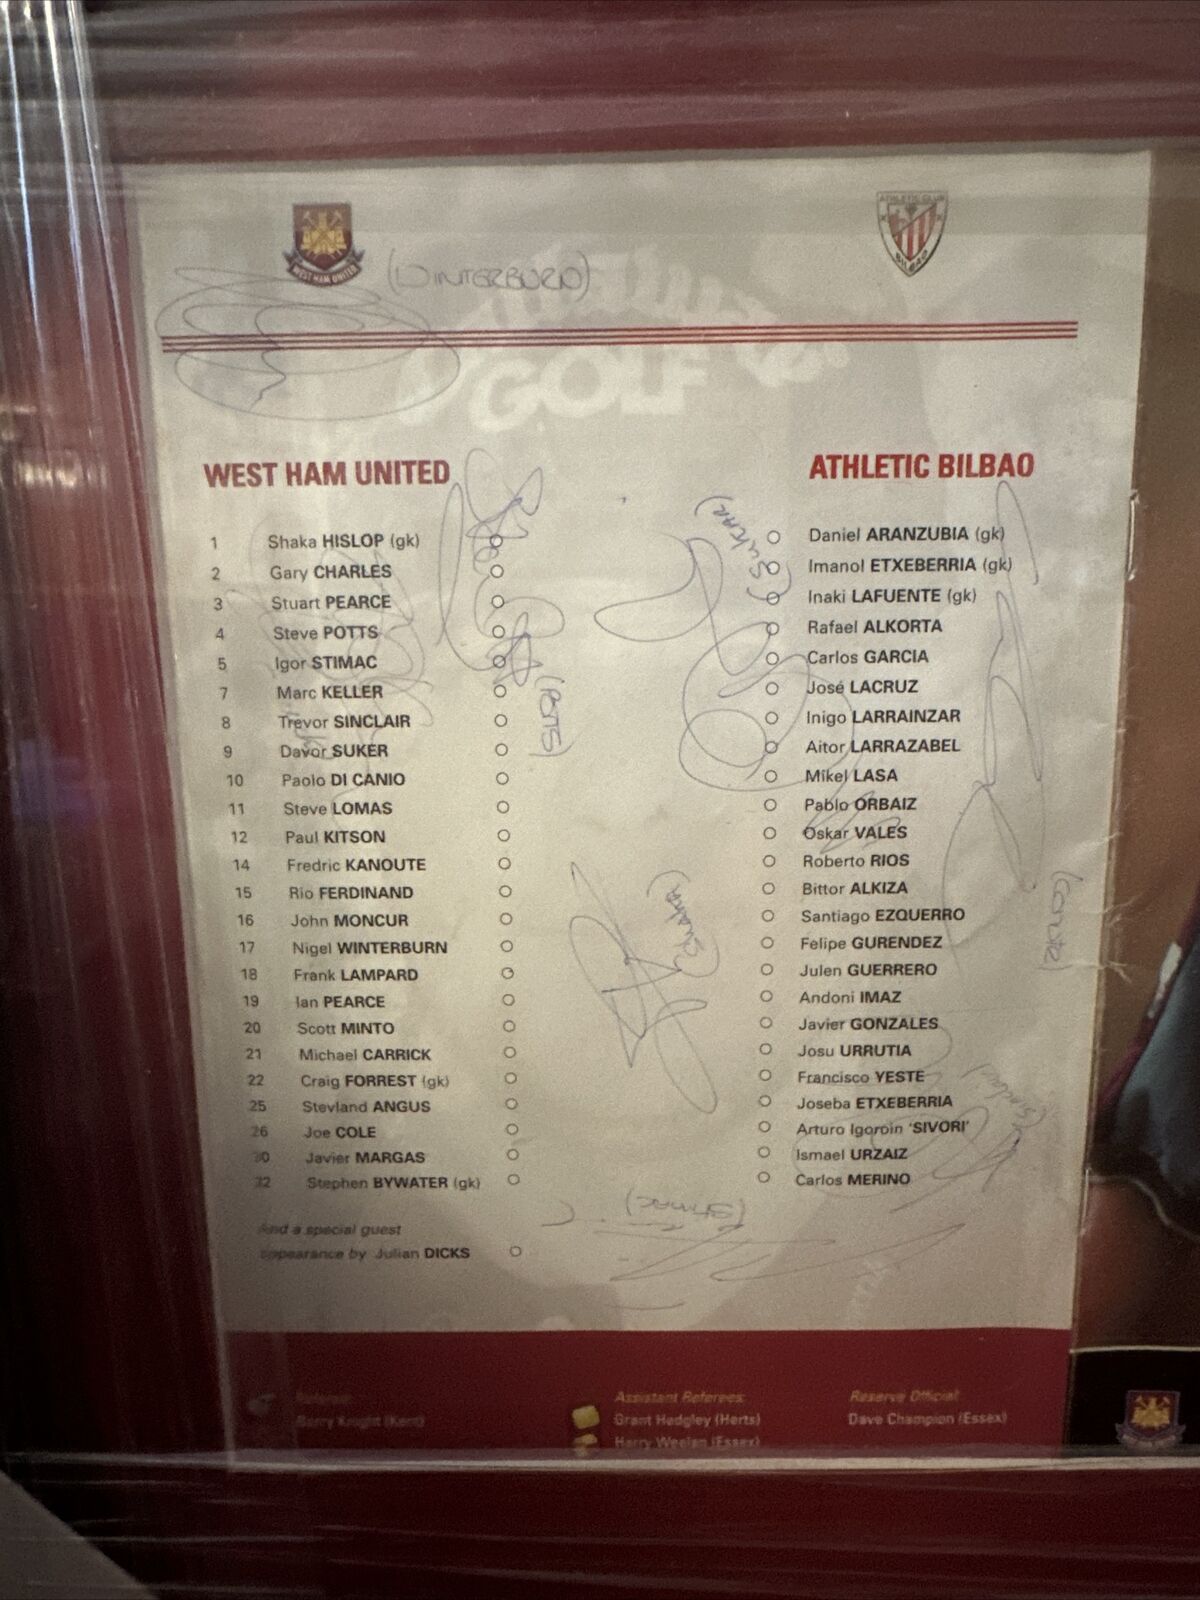 WEST HAM UNITED
ATHLETIC CLUB
BILBAO
(WINTERBURN)
GOLF
WEST HAM UNITED
1 Shaka HISLOP (gk)
2 Gary CHARLES
3 Stuart PEARCE
4 Steve POTTS
5 Igor STIMAC
7 Marc KELLER
8 Trevor SINCLAIR
9 Davor SUKER
10 Paolo DI CANIO
11 Steve LOMAS
12 Paul KITSON
14 Fredric KANOUTE
15 Rio FERDINAND
16 John MONCUR
17 Nigel WINTERBURN
18 Frank LAMPARD
19 Ian PEARCE
20 Scott MINTO
21 Michael CARRICK
22 Craig FORREST (gk)
25 Stevland ANGUS
26 Joe COLE
30 Javier MARGAS
32 Stephen BYWATER (gk)
And a special guest
appearance by Julian DICKS
(POTTS)
(Suker)
(Shaka)
(Stimac)
ATHLETIC BILBAO
Daniel ARANZUBIA (gk)
Imanol ETXEBERRIA (gk)
Inaki LAFUENTE (gk)
Rafael ALKORTA
Carlos GARCIA
José LACRUZ
Inigo LARRAINZAR
Aitor LARRAZABEL
Mikel LASA
Pablo ORBAIZ
Oskar VALES
Roberto RIOS
Bittor ALKIZA
Santiago EZQUERRO
Felipe GURENDEZ
Julen GUERRERO
Andoni IMAZ
Javier GONZALES
Josu URRUTIA
Francisco YESTE
Joseba ETXEBERRIA
Arturo Igoroin 'SIVORI'
Ismael URZAIZ
Carlos MERINO
(Sinclair)
Referee:
Barry Knight (Kent)
Assistant Referees:
Grant Hedgley (Herts)
Harry Weelan (Essex)
Reserve Official:
Dave Champion (Essex)